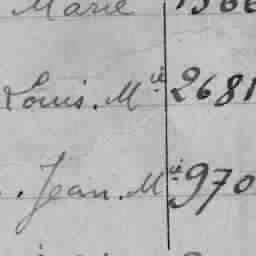 Marie 1366
Louis. Mie 2681
. Jean. Mie 970